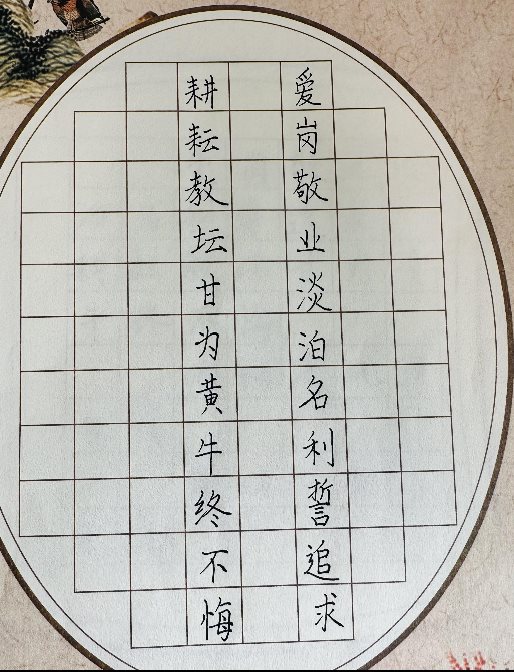 爱岗敬业淡泊名利誓追求
耕耘教坛甘为黄牛终不悔